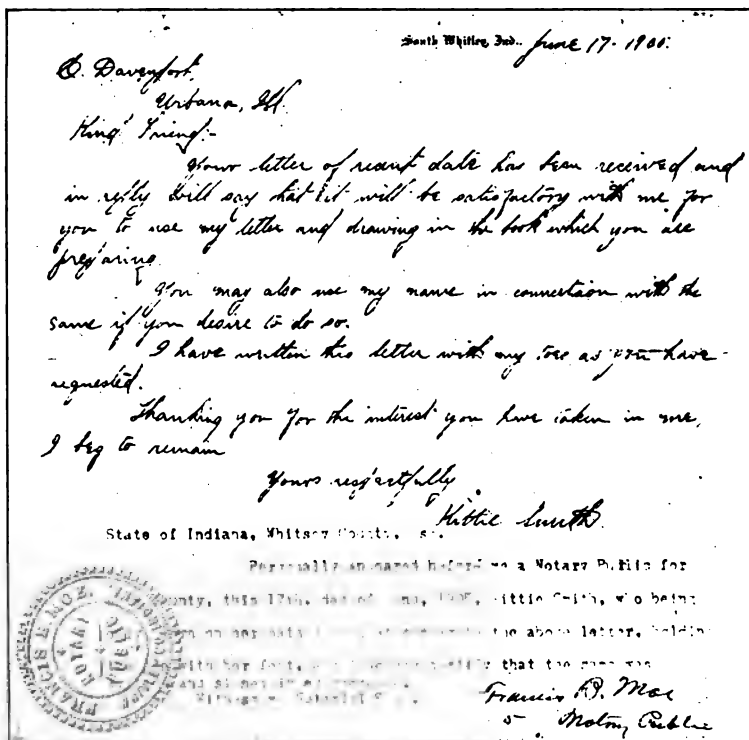 South Whitley, Ind., June 17 - 190
Davenport,
Urbana, Ill.
Kind Friend:-
Your letter of recent date has been received and
in reply will say that it will be satisfactory with me for
you to use my letter and drawing in the book which you are
preparing.
You may also use my name in connection with the
same if you desire to do so.
I have written this letter with my toes as you have
requested.
Thanking you for the interest you have taken in me,
I beg to remain
Yours respectfully
Kittie Smith
State of Indiana, Whitley County, ss.
Personally appeared before me a Notary Public for
County, this 17th, day of 190 , Kittie Smith, who being
on her the above letter, holding
with her feet, that the same was
and
Witness my Notarial
FRANCIS E. MOE
NOTARY
Francis E. Moe
Notary Public